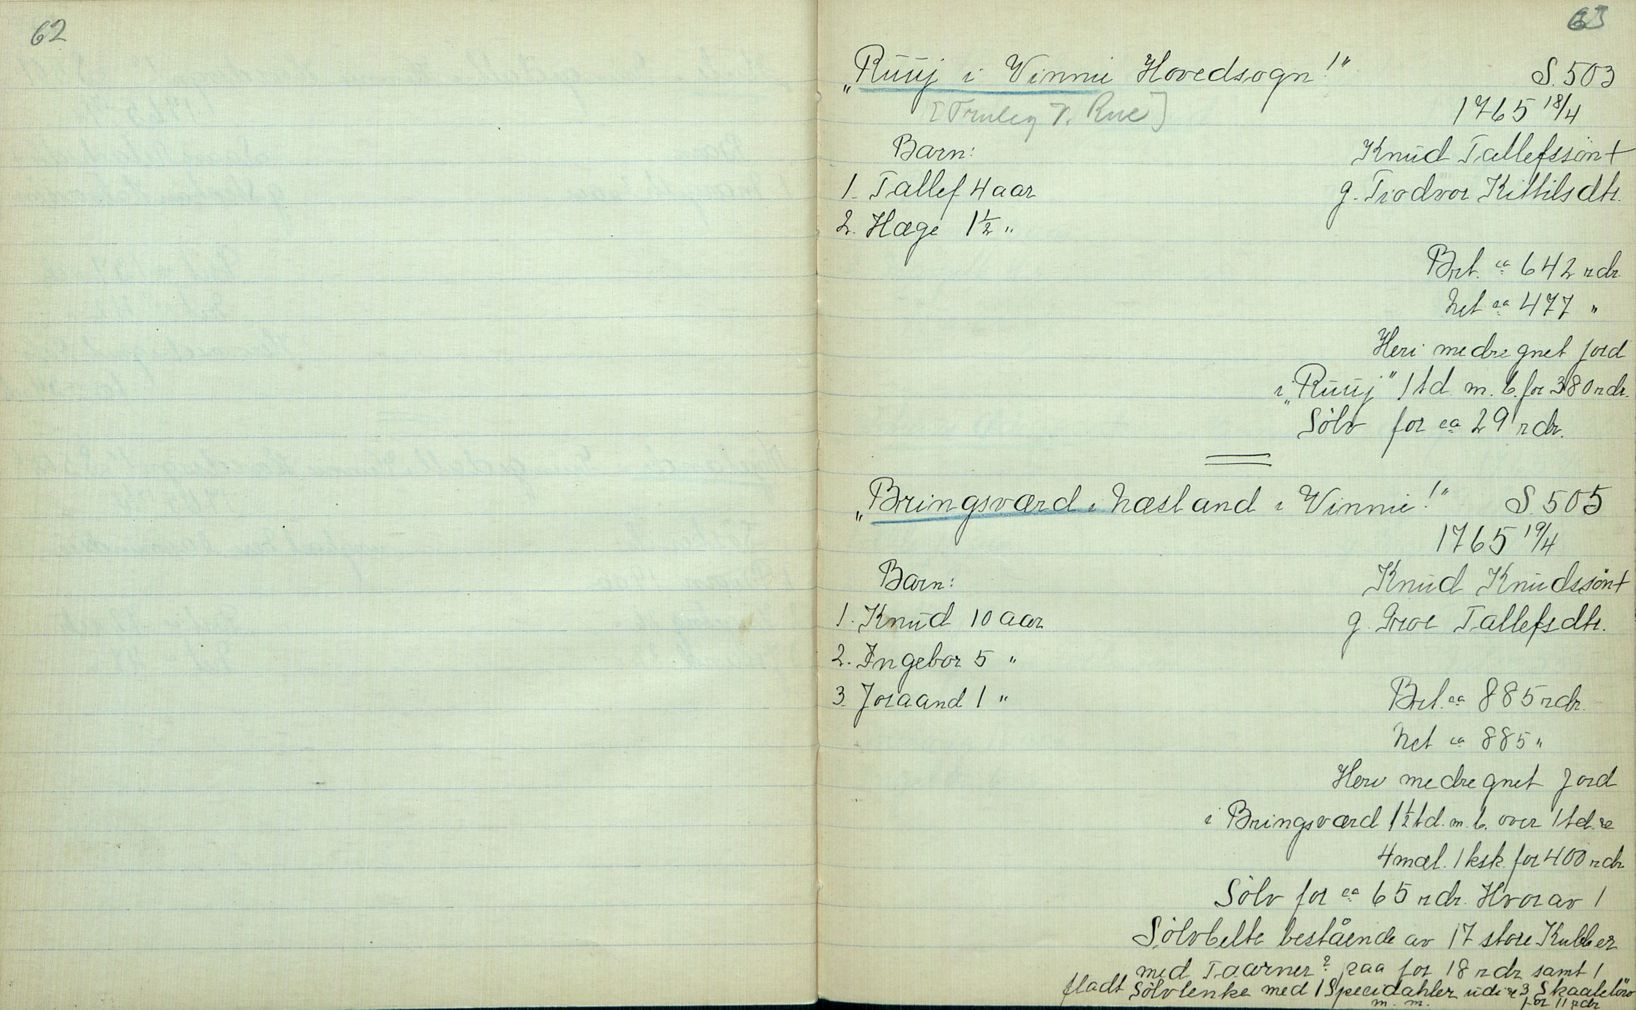 62
63
"Ruuj i Vinnie Hovedsogn!" S. 503
[Trulig v. Rue] 1765 18/4
Barn: Knud Tallefssøn†
1. Tallef 4 aar g. Tiodvor Kittilsdtr.
2. Hæge 1½ "
Brt. ca 642 rdr.
Net ca 477 "
Heri medregnet Jord
i "Ruuj" 1 td. m. b. for 380 rdr.
Sølv for ca 29 rdr.
"Bringsværd i Næsland i Vinnie!" S. 505
1765 19/4
Barn: Knud Knudssøn†
1. Knud 10 aar g. Groe Tallefsdtr.
2. Ingebor 5 "
3. Joraand 1 "
Brt. ca 885 rdr.
Net ca 885 "
Heri medregnet Jord
i Bringsværd 1½ td. m. b. over 1 td.
4 mæl. 1 ksk. for 400 rdr
Sølv for ca 65 rdr. Hvorav 1
Sølvbelte bestående av 17 store Kubber
med Taarner? paa for 18 rdr samt 1
fladt Sølvlenke med 1 Specidahler udi 3 Skaaleløv
m. m. for 11 rdr